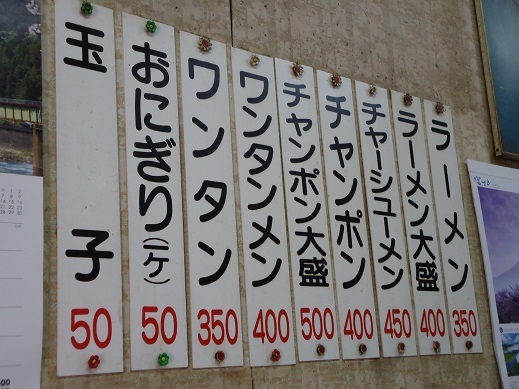 ラーメン 350
ラーメン大盛 400
チャーシューメン 450
チャンポン 400
チャンポン大盛 500
ワンタンメン 400
ワンタン 350
おにぎり(一ケ) 50
玉子 50